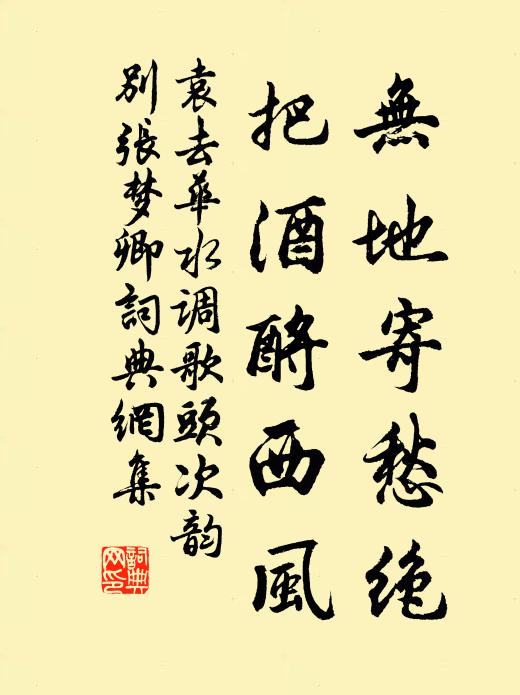 無地寄愁絶
把酒酹西風
袁去華水调歌頭次韵
别張梦卿詞典網集
詞典网印